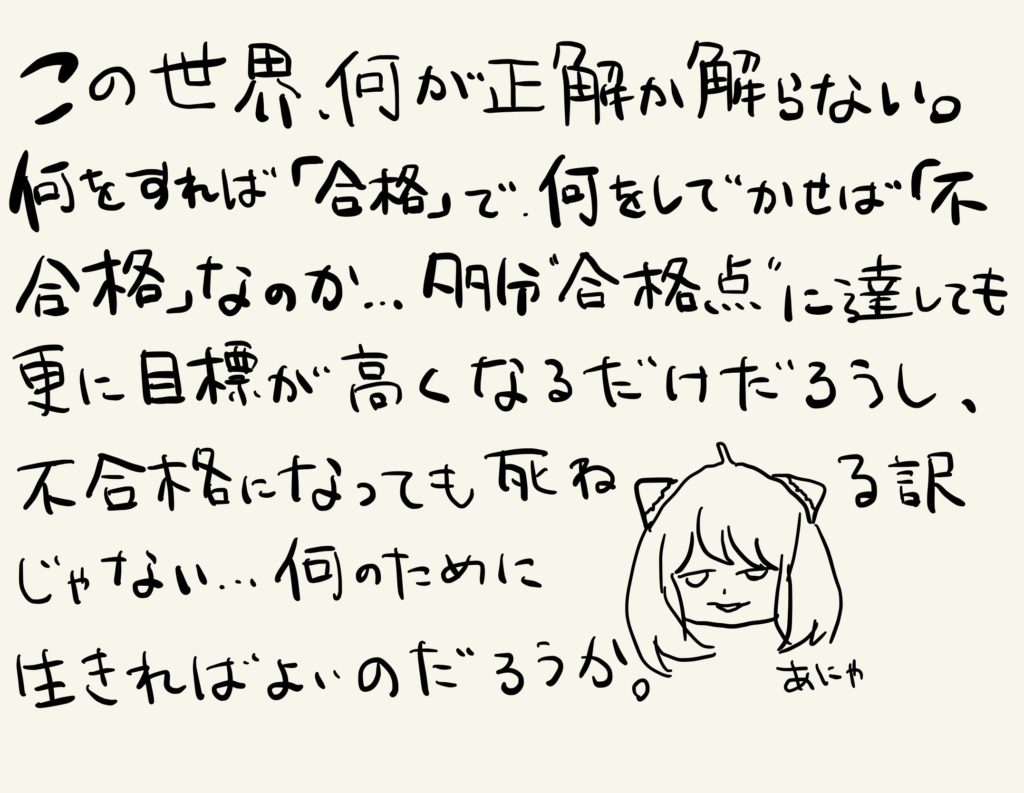 この世界、何が正解か解らない。
何をすれば「合格」で、何をしでかせば「不
合格」なのか…多分“合格点”に達しても
更に目標が高くなるだけだろうし、
不合格になっても死ねる訳
じゃない…何のために
生きればよいのだろうか。
あにゃ